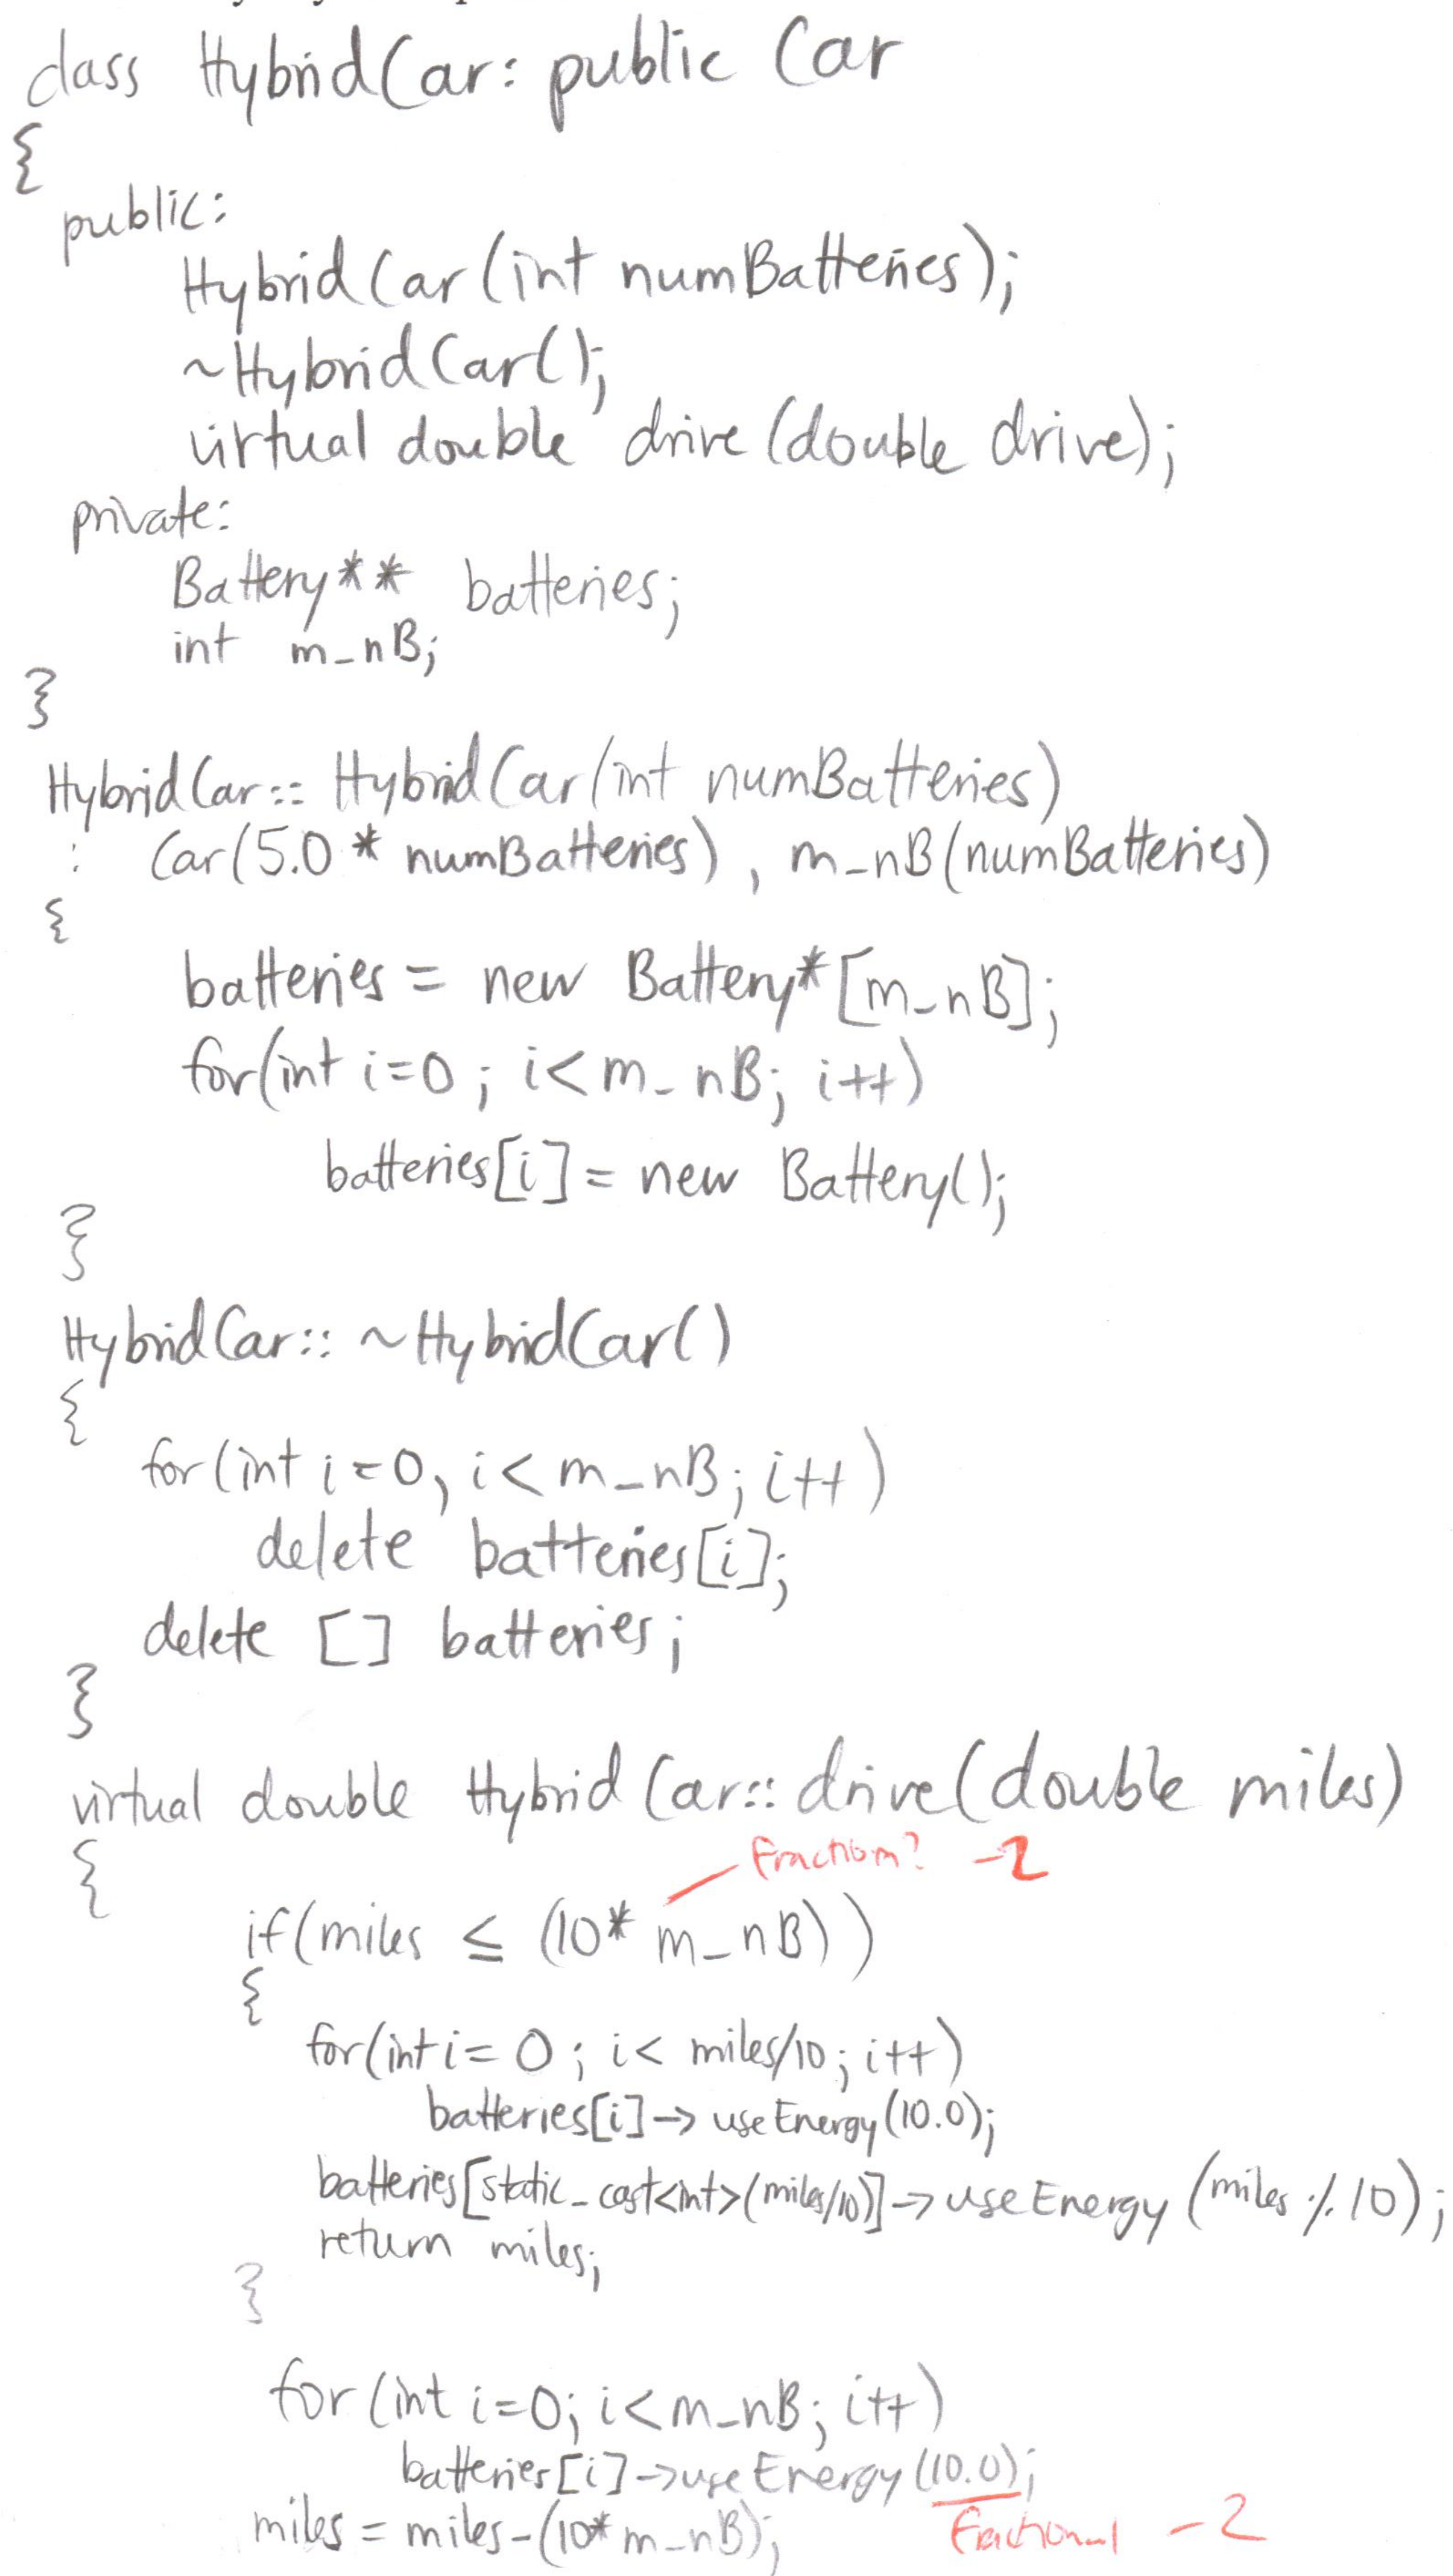 class HybridCar: public Car
{
public:
HybridCar(int numBatteries);
~HybridCar();
virtual double drive(double drive);
private:
Battery** batteries;
int m_nB;
}
HybridCar:: HybridCar(int numBatteries)
: Car(5.0 * numBatteries), m_nB(numBatteries)
{
batteries = new Battery*[m_nB];
for(int i=0; i<m_nB; i++)
batteries[i] = new Battery();
}
HybridCar:: ~HybridCar()
{
for(int i=0, i<m_nB; i++)
delete batteries[i];
delete [] batteries;
}
virtual double HybridCar:: drive(double miles)
{
Fraction? -2
if(miles ≤ (10* m_nB))
{
for(int i= 0; i< miles/10; i++)
batteries[i]-> useEnergy(10.0);
batteries[static_cast<int>(miles/10)]->useEnergy(miles % 10);
return miles;
}
for(int i=0; i<m_nB; i++)
batteries[i]->useEnergy(10.0);
miles = miles-(10*m_nB); Fractional -2